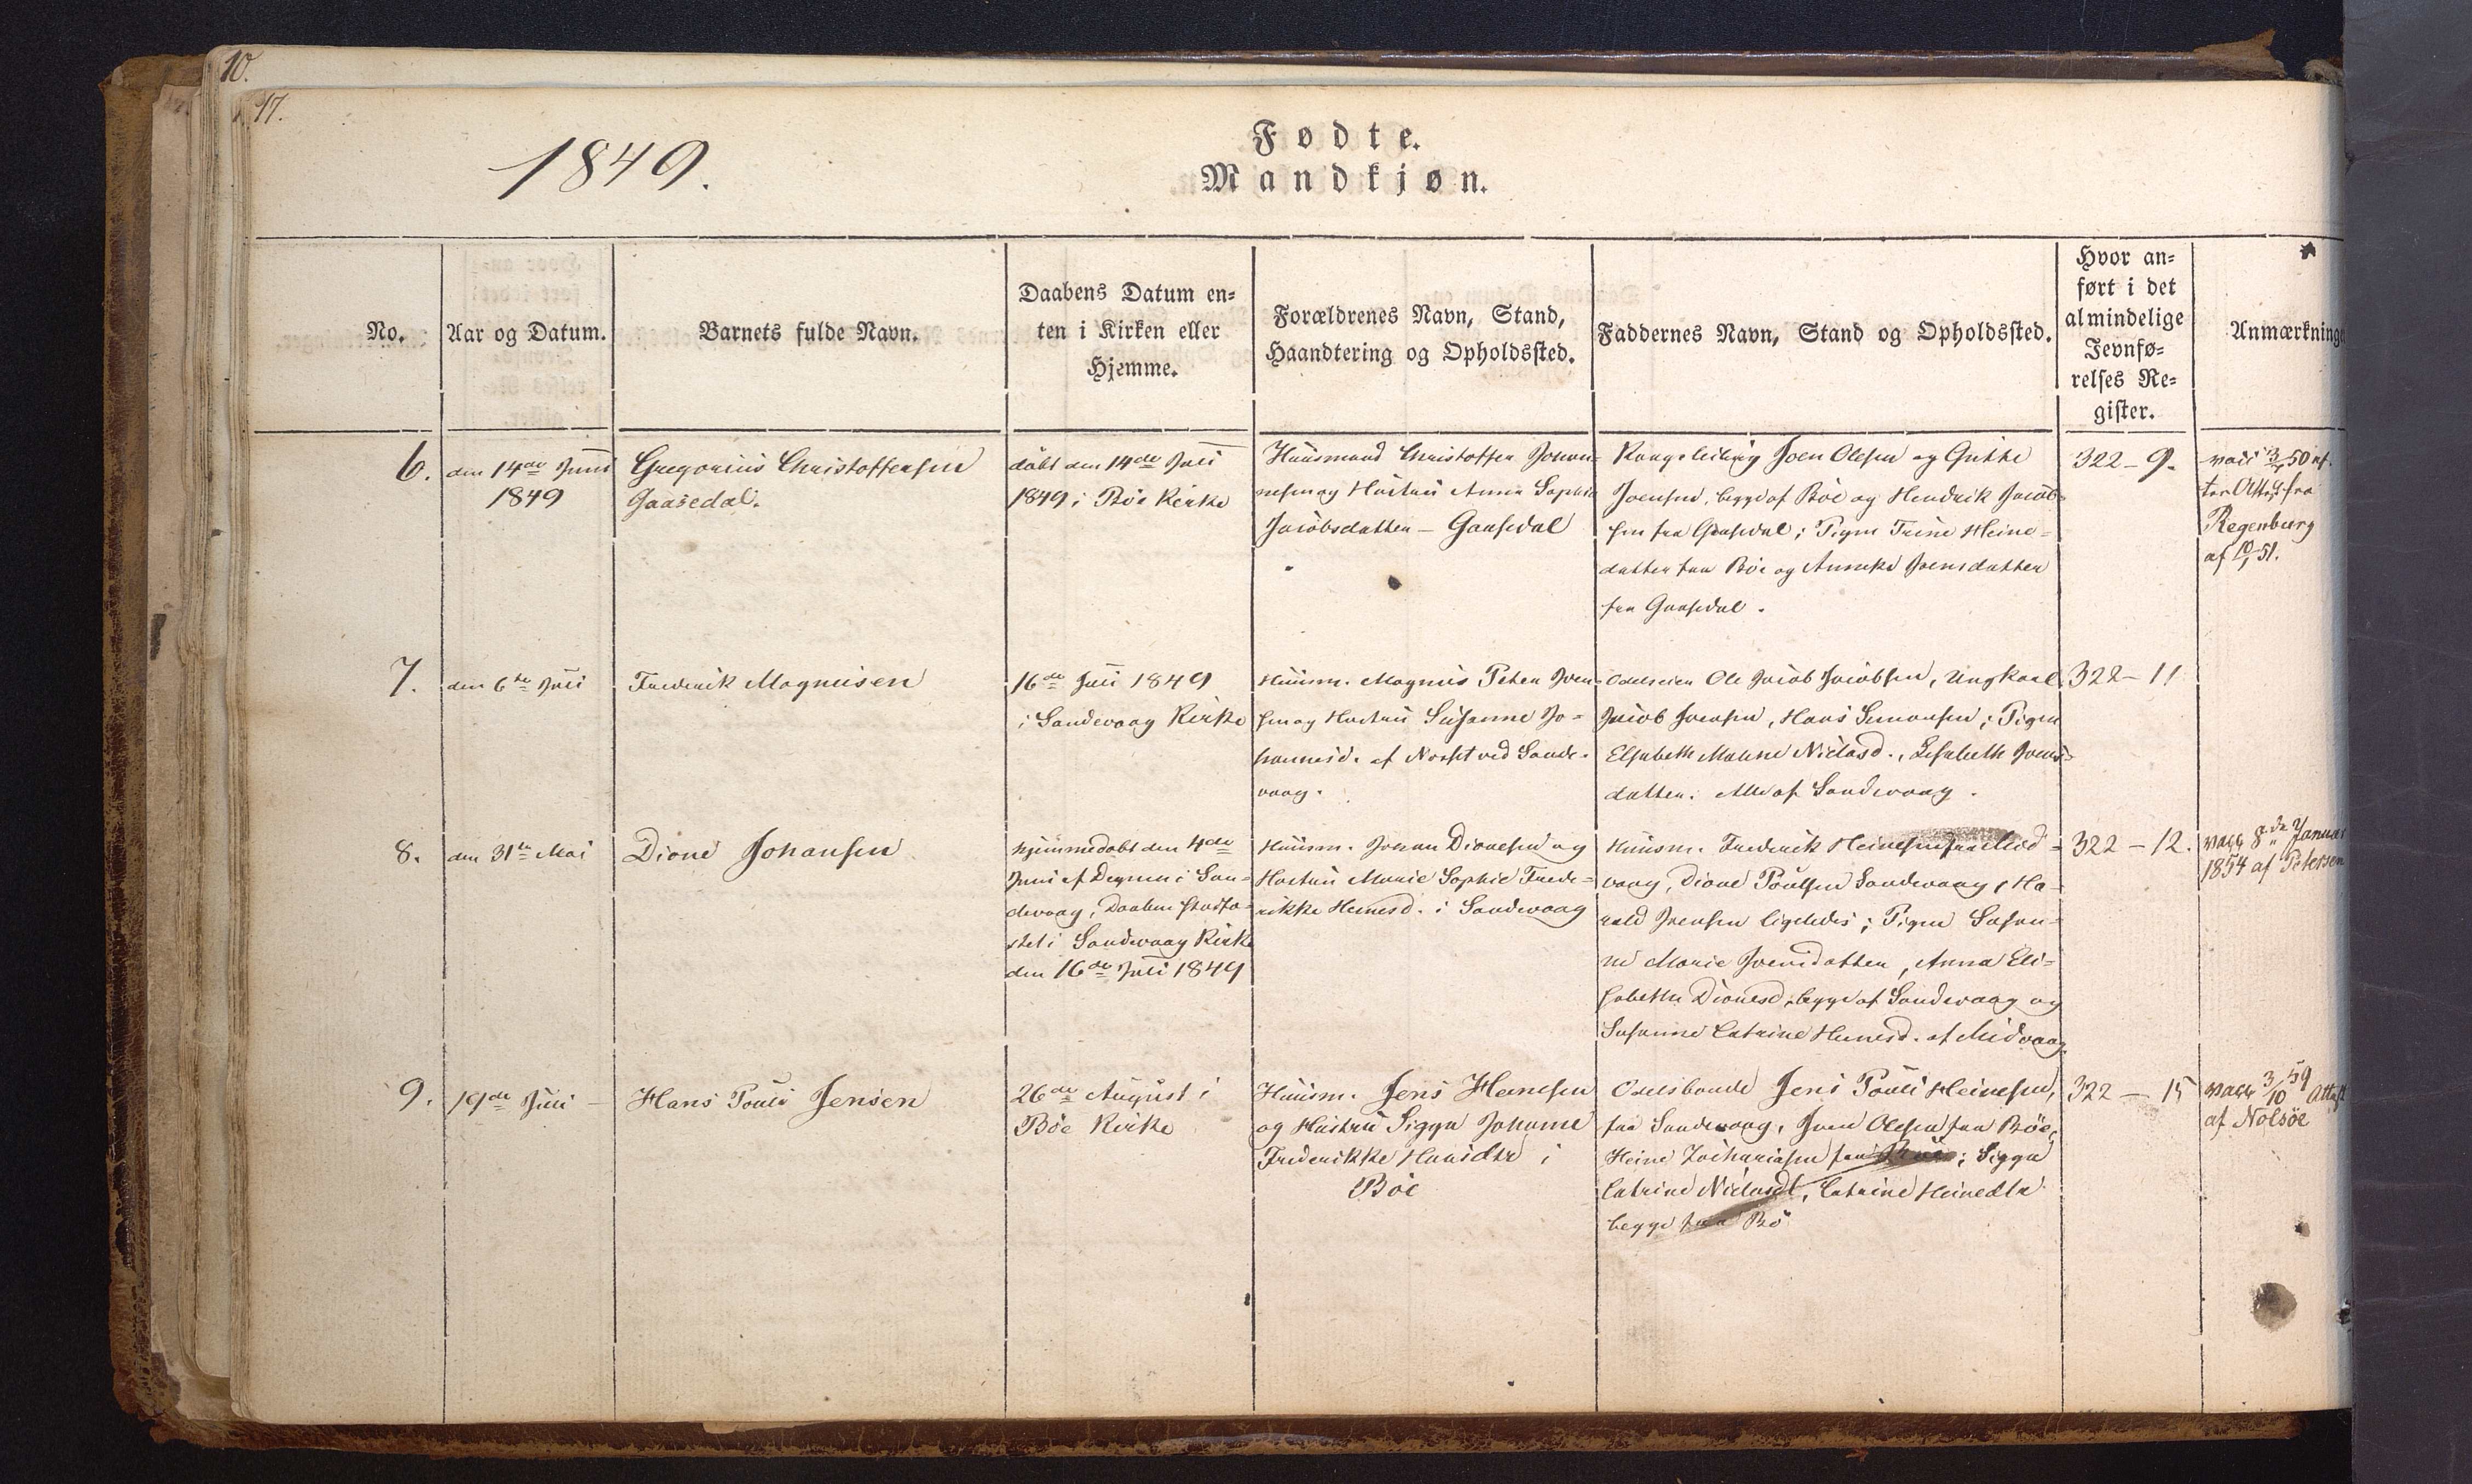 10.
17.
1849.
Fødte.
Mandkjøn.
No.
Aar og Datum.
Barnets fulde Navn.
Daabens Datum en-
ten i Kirken eller
Hjemme.
Forældrenes Navn, Stand,
Haandtering og Opholdssted.
Faddernes Navn, Stand og Opholdssted.
Hvor an-
ført i det
almindelige
Jevnfø-
relses Re-
gister.
Anmærkninge
6.
den 14de Juni
1849
Gregorius Christoffersen
Gaasedal.
døbt den 14de Juli
1849 i Bøe Kirke
Huusmand Christoffer Johan-
nesen og Hustru Anna Sophie
Jacobsdatter - Gaasedal
Kongsleilæng Joen Olesen og Guttе
Joensen, begge af Bøe og Hendrik Jacob-
sen fra Gaasedal; Pigen Trine Heine-
datter fra Bøe og Anneke Joensdatter
fra Gaasedal.
322 - 9.
50 ef-
ter Attest fra
Regenburg
af 10/1 51.
7.
den 6te Juli
Frederik Magnusen
16de Juli 1849
i Sandevaag Kirke
Huusm. Magnus Peter Joen-
sen og Hustru Susanne Jo-
hannesd. af ved Sande-
vaag.
Odelseier Ole Jacob Jacobsen, Ungkarl
Jacob Joensen, Hans Simonsen; Pigen
Elsebeth Malene Niclasd., Lisabeth Joens-
datter. Alle af Sandevaag.
322 - 11
8.
den 31te Mai
Dione Johansen
hjemmedøbt den 4de
Juni af Degnen i San-
devaag, Daaben stadfæ-
stet i Sandevaag Kirke
den 16de Juli 1849
Huusm. Johan Dionesen og
Hustru Marie Sophie Frede-
rikke Heinesd. i Sandevaag
Huusm. Frederik Heinesen fra Mid-
vaag, Dione Poulsen Sandevaag, Ha-
rald Joensen ligeledes; Pigen Susan-
ne Marie Joensdatter, Anna Eli-
sabeth Dionesd, begge af Sandevaag og
Susanne Catrine Heinesd. af Midvaag.
322 - 12.
vacc 8de Januar
1854 af Petersen
9.
19de Juli -
Hans Pouli Jensen
26de August i
Bøe Kirke
Huusm. Jens Heinesen
og Hustru Sigga Johanne
Frederikke Hansdtr i
Bøe
Odelsbonde Jens Pouli Heinesen,
fra Sandevaag, Joen Olesen fra Bøe,
Heine Zachariasen fra ; Sigga
Catrine Niclasdt, Catrine Heinedtr
begge fra Bø
322 - 15
vacc 3/10 59 Attest
af Nolsøe